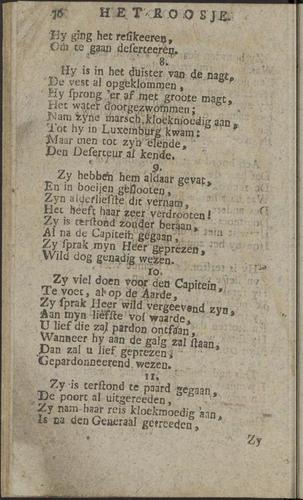 76 HET ROOSJE.
Hy ging het resikeeren,
Om te gaan deserteeren.
8.
Hy is in het duister van de nagt,
De vest al opgeklommen,
Hy sprong 'er af met groote magt,
Het water doorgezwommen;
Nam zyne marsch kloekmoedig aan,
Tot hy in Luxemburg kwam:
Maar men tot zyn elende,
Den Deserteur al kende.
9.
Zy hebben hem aldaar gevat,
En in boeijen geslooten,
Zyn alderliefste dit vernam,
Het heeft haar zeer verdrooten!
Zy is terstond zonder beraan,
Al na de Capitein gegaan,
Zy sprak myn Heer geprezen,
Wild dog genadig wezen.
10.
Zy viel doen voor den Capitein,
Te voet, al op de Aarde,
Zy sprak Heer wild vergeevend zyn,
Aan myn liefste vol waarde,
U lief die zal pardon ontfaan,
Wanneer hy aan de galg zal staan,
Dan zal u lief geprezen,
Gepardonneerend wezen.
11.
Zy is terstond te paard gegaan,
De poort al uitgereeden,
Zy nam haar reis kloekmoedig aan,
Is na den Generaal getreeden,
Zy